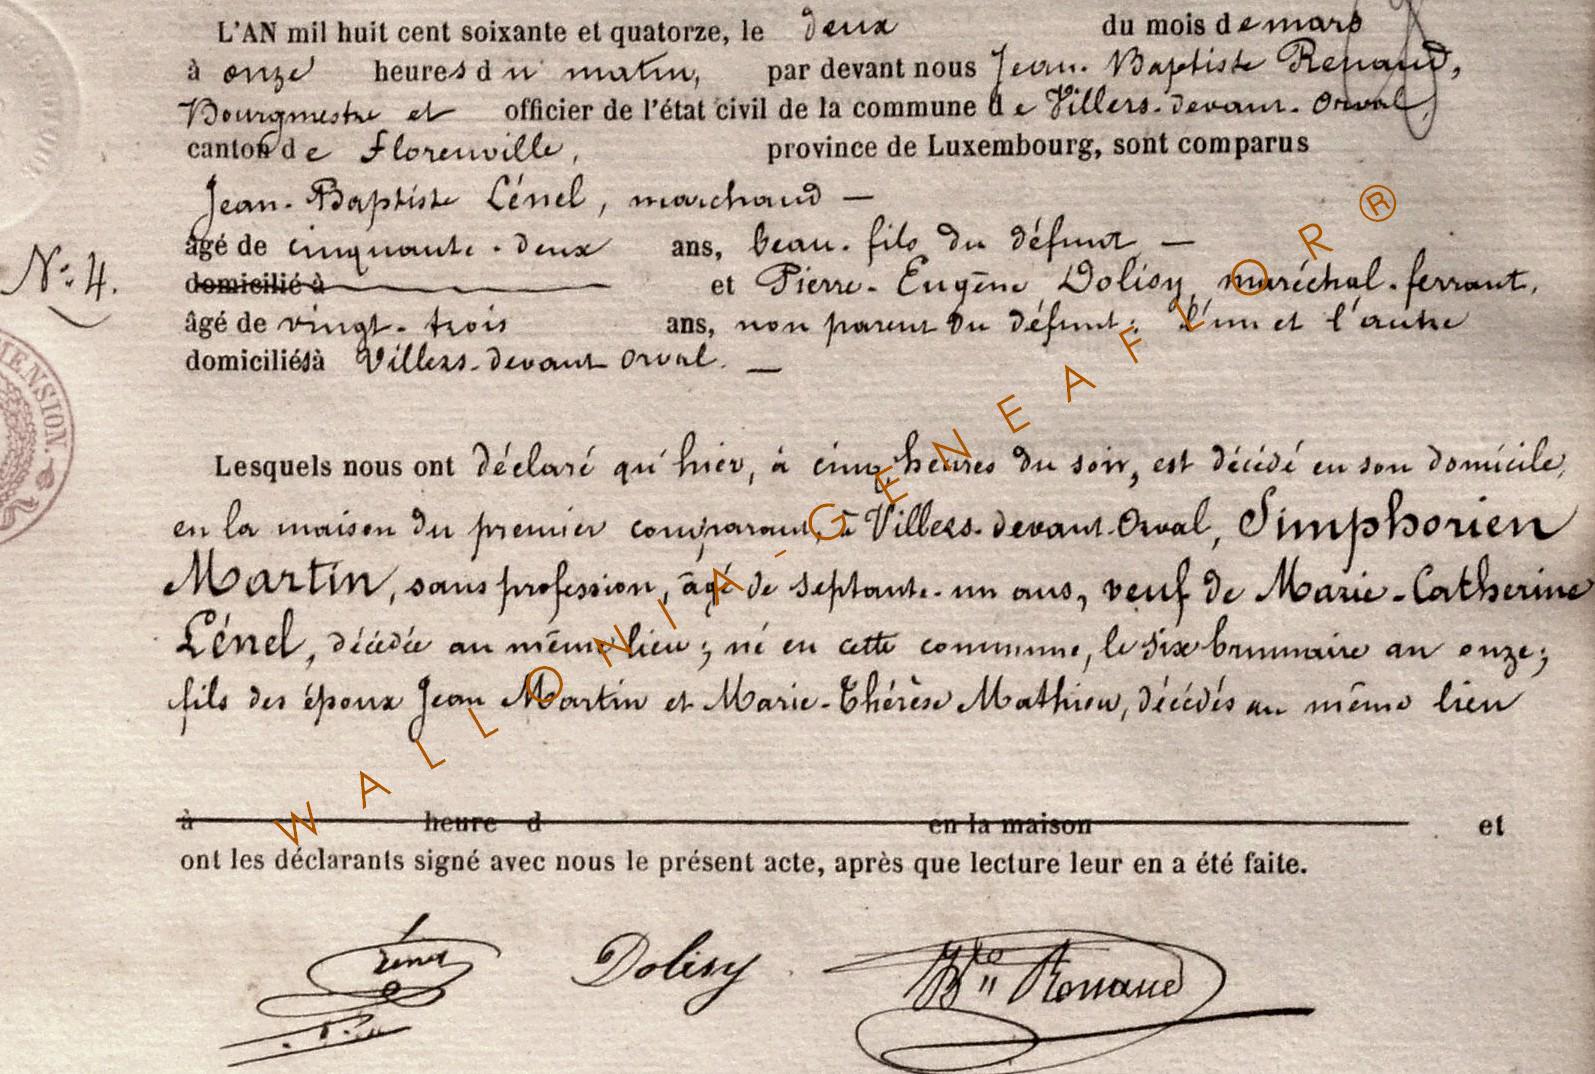 L'AN mil huit cent soixante et quatorze, le deux du mois de mars
à onze heures du matin, par devant nous Jean-Baptiste Renaud,
Bourgmestre et officier de l'état civil de la commune de Villers-devant-Orval,
canton de Florenville, province de Luxembourg, sont comparus
Jean-Baptiste Lénel, marchand —
âgé de cinquante-deux ans, beau-fils du défunt —
N° 4.
domicilié à et Pierre-Eugène Dolisy, maréchal-ferrant,
âgé de vingt-trois ans, non parent du défunt; l'un et l'autre
domiciliés à Villers-devant Orval. —
MENSION.
Lesquels nous ont déclaré qu'hier, à cinq heures du soir, est décédé en son domicile,
en la maison du premier comparant, à Villers-devant-Orval, Simphorien
Martin, sans profession, âgé de septante-un ans, veuf de Marie-Catherine
Lénel, décédée au même lieu; né en cette commune, le six brumaire an onze;
fils des époux Jean Martin et Marie-Thérèse Mathieu, décédés au même lieu
à heure d en la maison et
ont les déclarants signé avec nous le présent acte, après que lecture leur en a été faite.
Lénel Dolisy Bte Renaud
WALLONIA-GENEAFLOR®